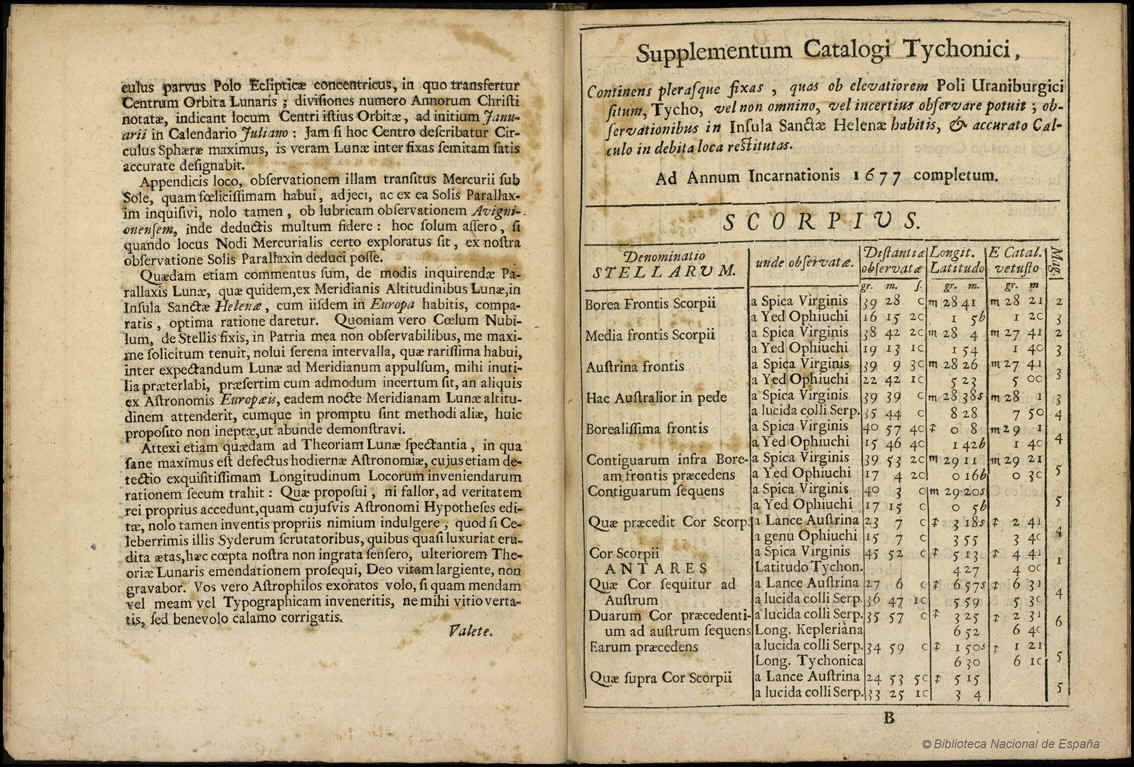 culus parvus Polo Eclipticæ concentricus, in quo transfertur
Centrum Orbitæ Lunaris ; divisiones numero Annorum Christi
notatæ, indicant locum Centri istius Orbitæ, ad initium Janu-
arii in Calendario Juliano : Jam si hoc Centro describatur Cir-
culus Sphæræ maximus, is veram Lunæ inter fixas semitam satis
accurate designabit.
Appendicis loco, observationem illam transitus Mercurii sub
Sole, quam fœlicissimam habui, adjeci, ac ex ea Solis Parallax-
im inquisivi, nolo tamen , ob lubricam observationem Avigni-
onensem, inde deductis multum fidere : hoc solum assero, si
quando locus Nodi Mercurialis certo exploratus sit, ex nostra
observatione Solis Parallaxin deduci posse.
Quædam etiam commentus sum, de modis inquirendæ Pa-
rallaxis Lunæ, quæ quidem,ex Meridianis Altitudinibus Lunæ,in
Insula Sanctæ Helenæ, cum iisdem in Europa habitis, compa-
ratis , optima ratione daretur. Quoniam vero Cœlum Nubi-
lum, de Stellis fixis, in Patria mea non observabilibus, me maxi-
me solicitum tenuit, nolui serena intervalla, quæ rarissima habui,
inter expectandum Lunæ ad Meridianum appulsum, mihi inuti-
lia præterlabi, præsertim cum admodum incertum sit, an aliquis
ex Astronomis Europæis, eadem nocte Meridianam Lunæ altitu-
dinem attenderit, cumque in promptu sint methodi aliæ, huic
proposito non ineptæ,ut abunde demonstravi.
Attexi etiam quædam ad Theoriam Lunæ spectantia , in qua
sane maximus est defectus hodiernæ Astronomiæ, cujus etiam de-
tectio exquisitissimam Longitudinum Locorum inveniendarum
rationem secum trahit : Quæ proposui , ni fallor, ad veritatem
rei proprius accedunt,quam cujusvis Astronomi Hypotheses edi-
tæ, nolo tamen inventis propriis nimium indulgere , quod si Ce-
leberrimis illis Syderum scrutatoribus, quibus quasi luxuriat eru-
dita ætas,hæc cœpta nostra non ingrata sensero, ulteriorem The-
oriæ Lunaris emendationem prosequi, Deo vitam largiente, non
gravabor. Vos vero Astrophilos exoratos volo, si quam mendam
vel meam vel Typographicam inveneritis, ne mihi vitio verta-
tis, sed benevolo calamo corrigatis.
Valete.
Supplementum Catalogi Tychonici,
Continens plerasque fixas , quas ob elevatiorem Poli Uraniburgici
situm, Tycho, vel non omnino, vel incertius observare potuit ; ob-
servationibus in Insula Sanctæ Helenæ habitis, & accurato Cal-
culo in debita loca restitutas.
Ad Annum Incarnationis 1677 completum.
SCORPIVS.
Denominatio STELLARVM. unde observatæ. Distantiæ observatæ Longit. Latitudo E Catal. vetusto Mag.
gr. m. s. gr. m. gr. m
Borea Frontis Scorpii a Spica Virginis 39 28 0 ♏ 28 41 ♏ 28 21 2
a Yed Ophiuchi 16 15 20 1 5b 1 20 3
Media frontis Scorpii a Spica Virginis 38 42 20 ♏ 28 4 ♏ 27 41 2
a Yed Ophiuchi 19 13 10 1 54 1 40 3
Austrina frontis a Spica Virginis 39 9 30 ♏ 28 26 ♏ 27 41
a Yed Ophiuchi 22 42 10 5 23 5 00 3
Hac Australior in pede a Spica Virginis 39 39 0 ♏ 28 38s ♏ 28 1 3
a lucida colli Serp. 35 44 0 8 28 7 50 4
Borealissima frontis a Spica Virginis 40 57 40 ♐ 0 8 ♏ 29 1
a Yed Ophiuchi 15 46 40 1 42b 1 40 4
Contiguarum infra Bore- a Spica Virginis 39 53 20 ♏ 29 11 ♏ 29 21
am frontis præcedens a Yed Ophiuchi 17 4 20 0 16b 0 30 5
Contiguarum sequens a Spica Virginis 40 3 0 ♏ 29 20s
a Yed Ophiuchi 17 15 0 0 5b 5
Quæ præcedit Cor Scorp. a Lance Austrina 23 7 0 ♐ 3 18s ♐ 2 41
a genu Ophiuchi 15 7 0 3 55 3 40 4
Cor Scorpii a Spica Virginis 45 52 0 ♐ 5 13 ♐ 4 41
ANTARES Latitudo Tychon. 4 27 4 00 1
Quæ Cor sequitur ad a Lance Austrina 27 6 0 ♐ 6 57s ♐ 6 31
Austrum a lucida colli Serp. 36 47 10 5 59 5 30 4
Duarum Cor præcedenti- a lucida colli Serp. 35 57 0 ♐ 3 25 ♐ 2 31
um ad austrum sequens Long. Kepleriana 6 52 6 40 6
Earum præcedens a lucida colli Serp. 34 59 0 ♐ 1 50s ♐ 1 21
Long. Tychonica 6 30 6 10 5
Quæ supra Cor Scorpii a Lance Austrina 24 53 50 ♐ 5 15
a lucida colli Serp. 33 25 10 3 4 5
B
© Biblioteca Nacional de España